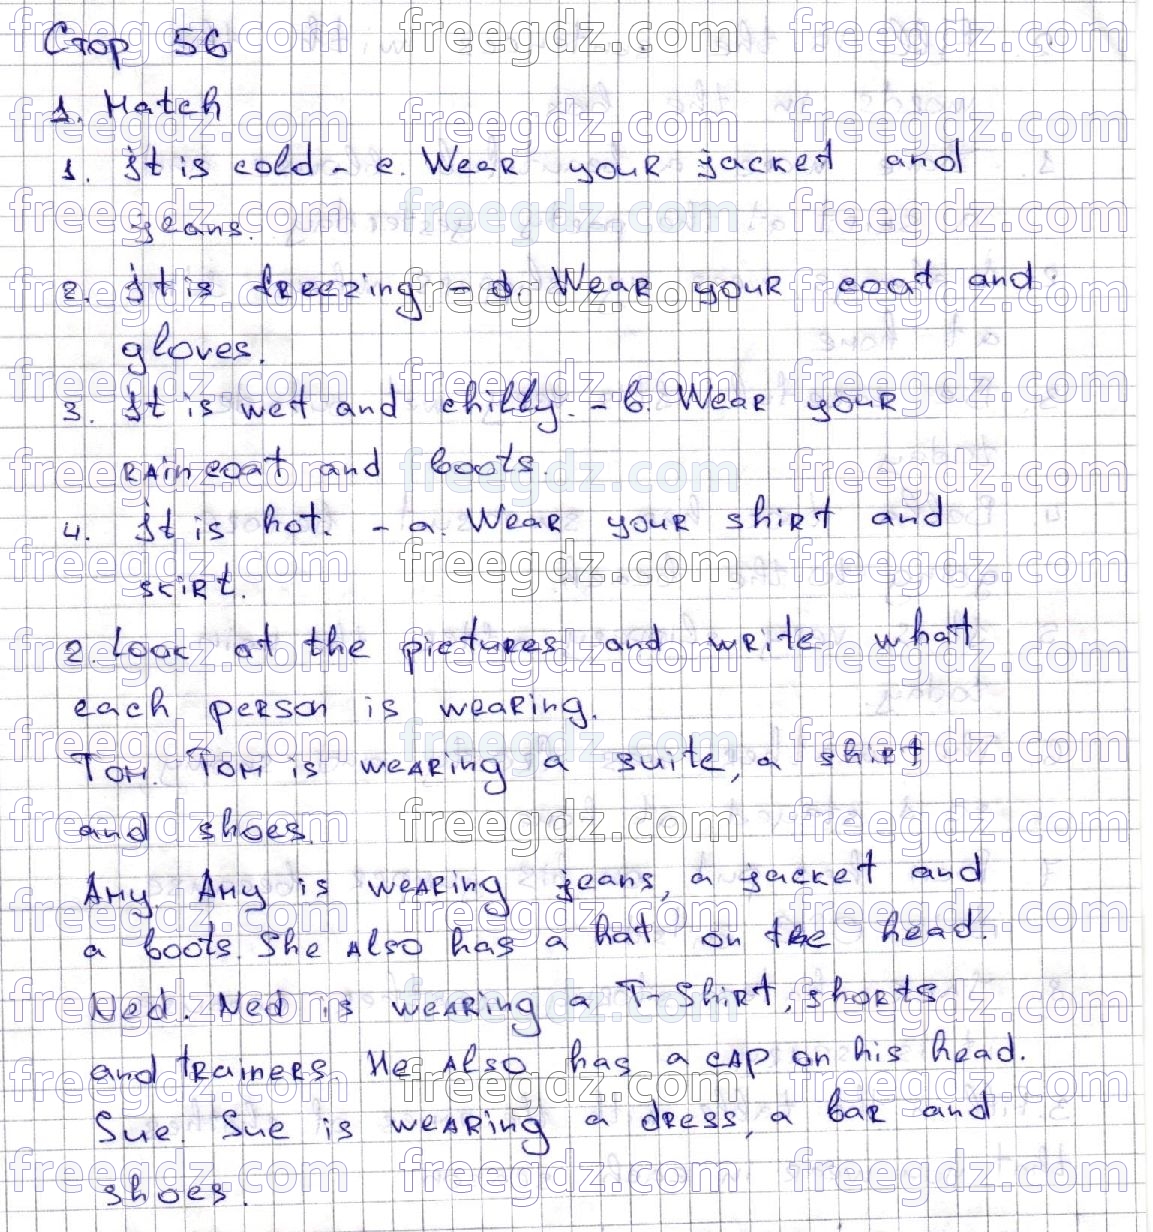 Стор 56
1. Match
1. It is cold - c. Wear your jacket and
jeans.
2. It is freezing - d. Wear your coat and
gloves.
3. It is wet and chilly. - b. Wear your
raincoat and boots.
4. It is hot. - a. Wear your shirt and
skirt.
2. Look at the pictures and write what
each person is wearing.
Tom. Tom is wearing a suite, a shirt
and shoes.
Amy. Amy is wearing jeans, a jacket and
a boots. She also has a hat on the head.
Ned. Ned is wearing a T-Shirt, shorts
and trainers. He also has a cap on his head.
Sue. Sue is wearing a dress, a bar and
shoes.
freegdz.com